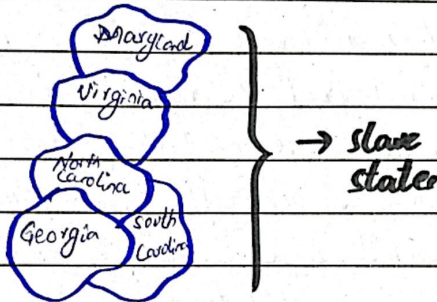 Maryland
Virginia
North
Carolina
Georgia
South
Carolina
→ slave
states